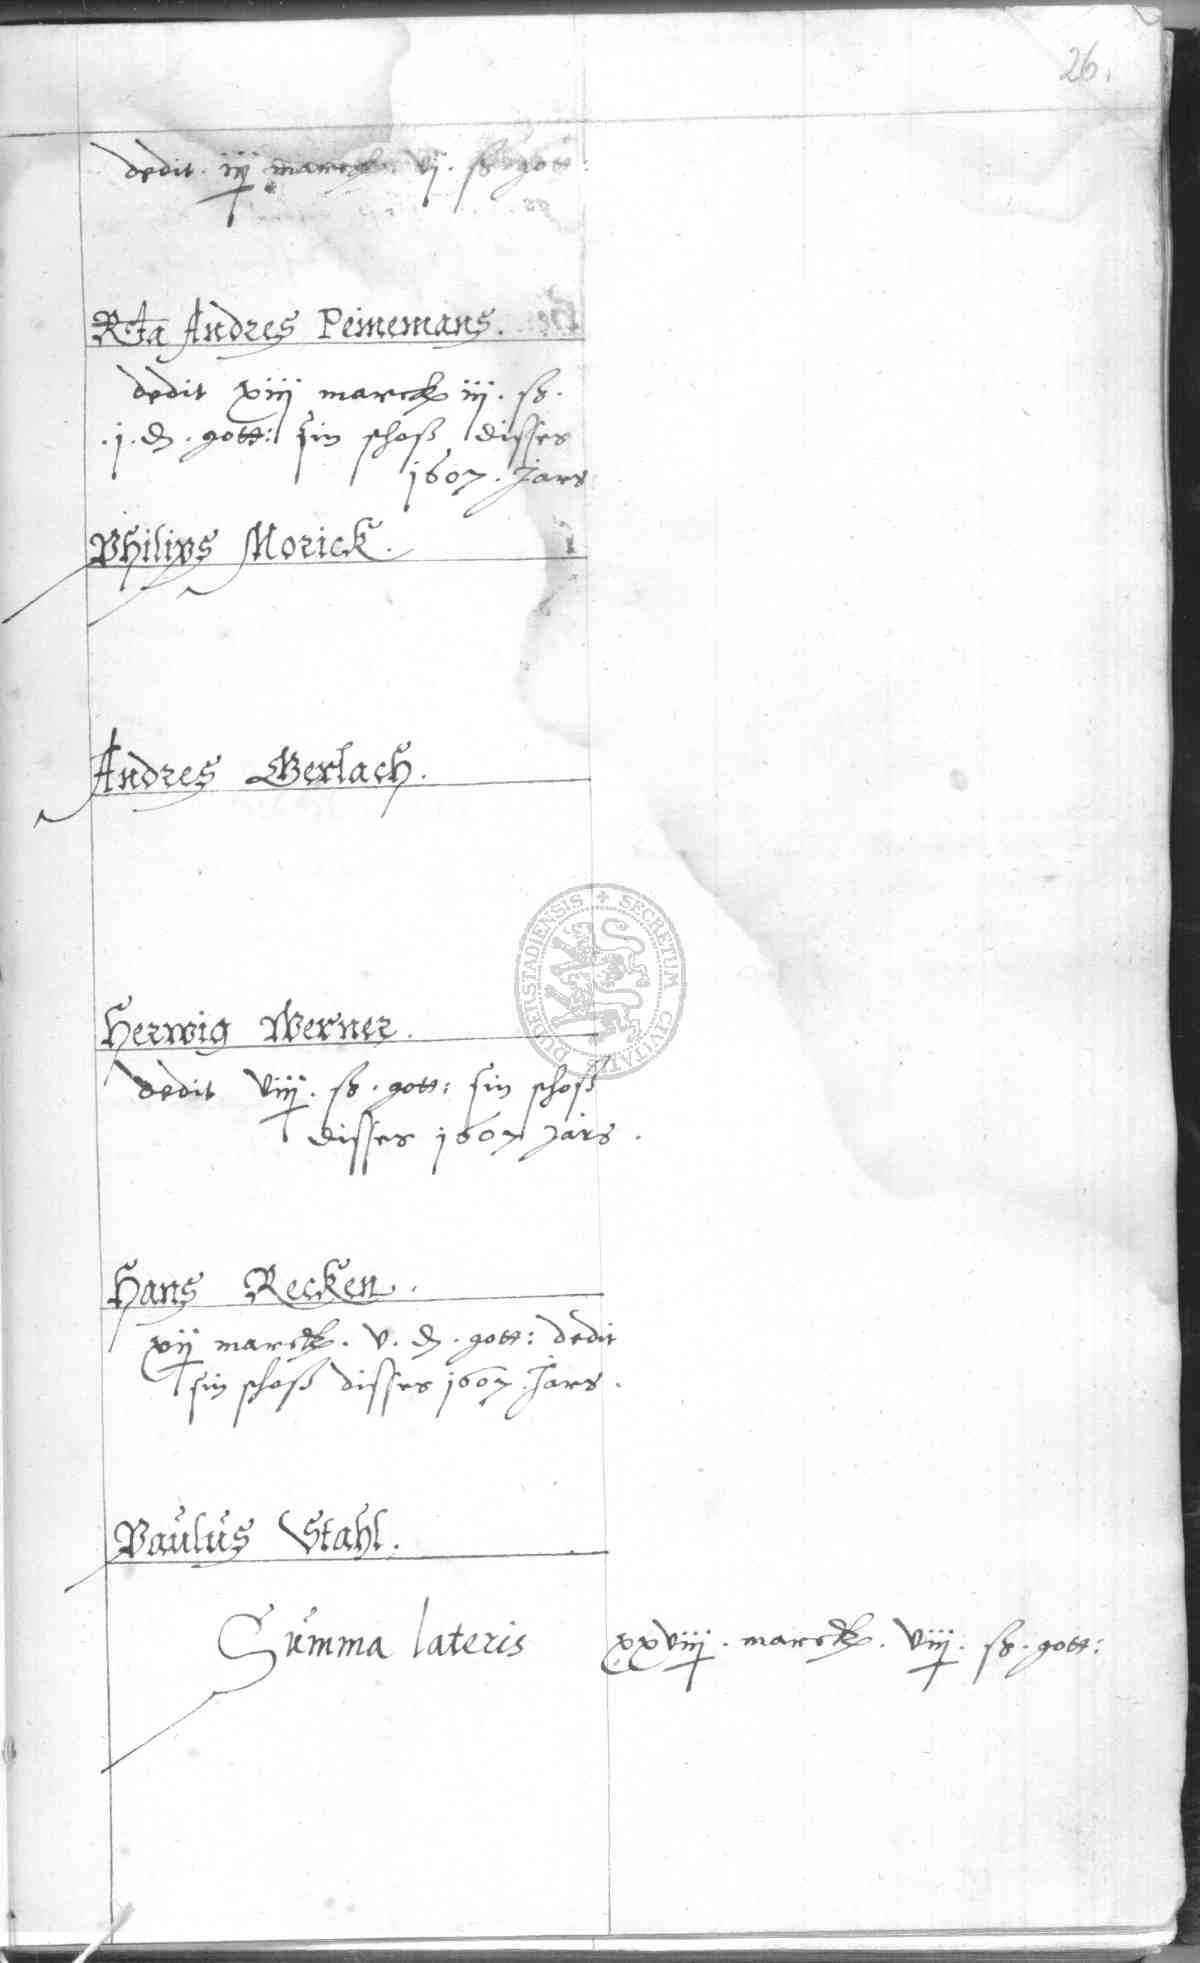 26.
dedit . iij marck . vj . ß gott:
Rta Andres Peinemans.
dedit xiij marck iij . ß .
. j . d . gott: sin schoß disses
1607 . Jars
Philips Morick .
Andres Gerlach .
SECRETUM CIVITATIS DUDERSTADIENSIS
Herwig Werner .
dedit viij . ß . gott: sin schoß
disses 1607 Jars .
Hans Recken .
xij marck . v . d . gott: dedit
sin schoß disses 1607 . Jars .
Paulus Stahl .
Summa lateris xxviij . marck . viij . ß . gott: